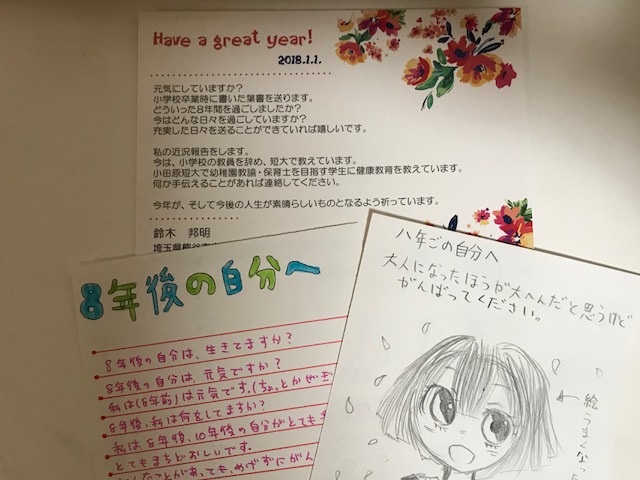 Have a great year!
2018.1.1.
元気にしていますか?
小学校卒業時に書いた葉書を送ります。
どういった8年間を過ごしましたか?
今はどんな日々を過ごしていますか?
充実した日々を送ることができていれば嬉しいです。
私の近況報告をします。
今は、小学校の教員を辞め、短大で教えています。
小田原短大で幼稚園教諭・保育士を目指す学生に健康教育を教えています。
何か手伝えることがあれば連絡してください。
今年が、そして今後の人生が素晴らしいものとなるよう祈っています。
鈴木 邦明
埼玉県熊谷市
8年後の自分へ
8年後の自分は、生きてますか?
8年後の自分は、元気ですか?
私は(8年前)は元気です。(ちょっとかぜぎ
8年後、私は何をしてますか?
私は、8年後、10年後の自分がとても
とてもまちどおしいです。
なことがあっても、めげずにがん
八年ごの自分へ
大人になったほうが大へんだと思うけど
がんばってください。
絵うまくなった